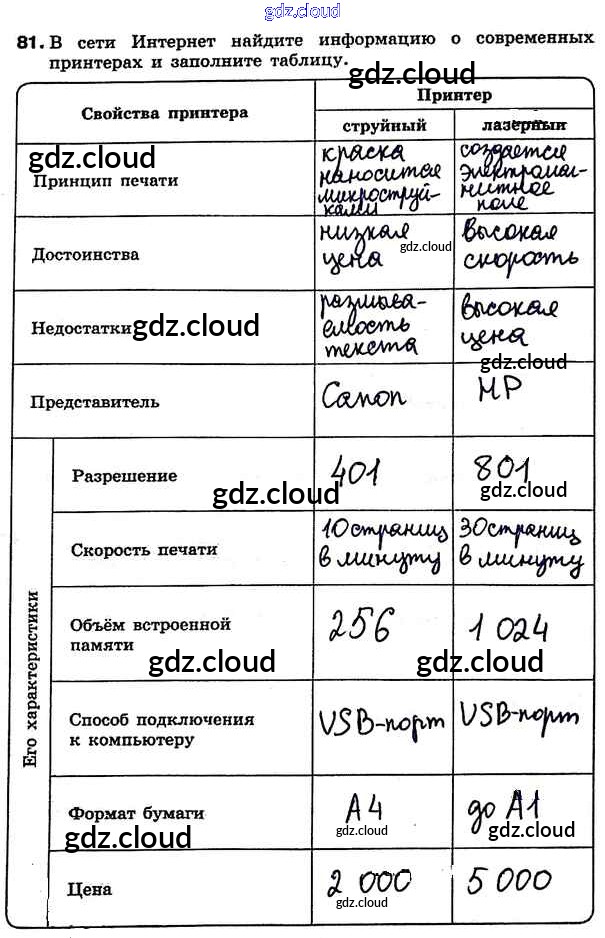 gdz.cloud
81. В сети Интернет найдите информацию о современных
принтерах и заполните таблицу.
gdz.cloud
Свойства принтера
Принтер
струйный
лазерный
gdz.cloud
Принцип печати
краска
наносится
микроструй-
ками
создается
электромаг-
нитное
поле
Достоинства
низкая
цена
gdz.cloud
высокая
скорость
Недостатки
gdz.cloud
размыва-
емость
текста
высокая
цена
gdz.cloud
Представитель
Canon
HP
Его характеристики
Разрешение
gdz.cloud
401
801
gdz.cloud
Скорость печати
10 страниц
в минуту
30 страниц
в минуту
Объём встроенной
памяти
gdz.cloud
256
1 024
Способ подключения
к компьютеру
USB-порт
USB-порт
Формат бумаги
gdz.cloud
A4
gdz.cloud
до A1
gdz.cloud
Цена
2 000
gdz.cloud
5 000